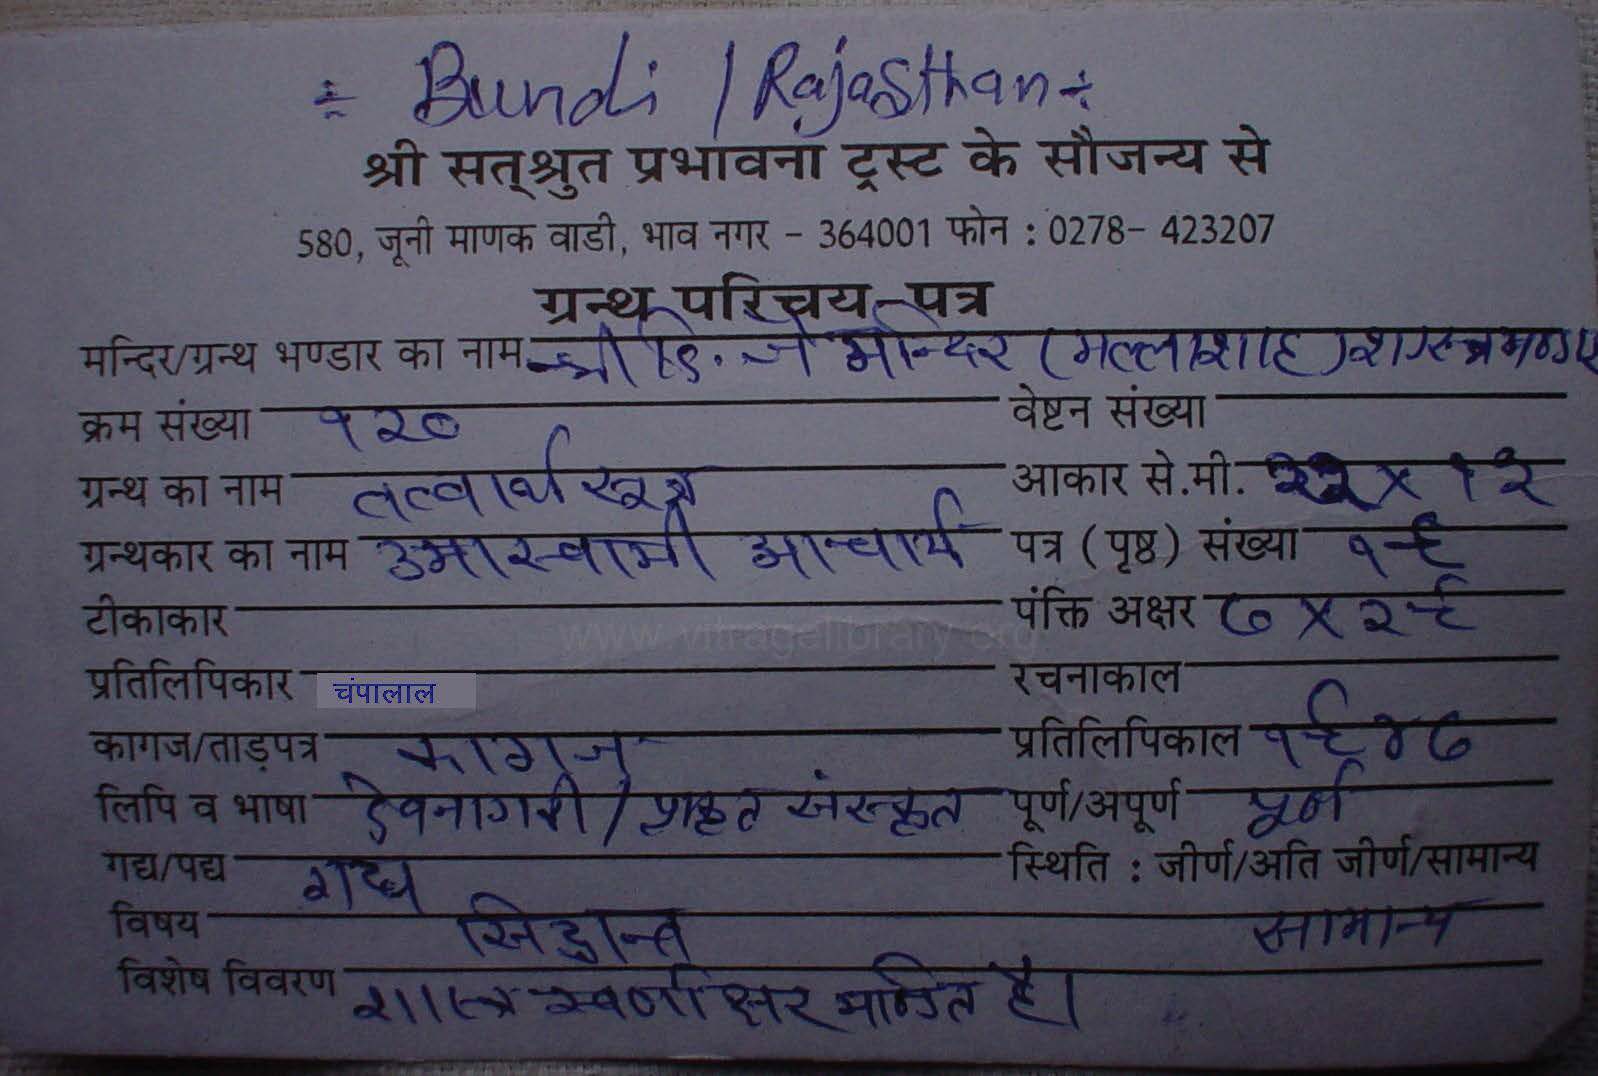 ÷ Bundi / Rajasthan ÷
श्री सत्‌श्रुत प्रभावना ट्रस्ट के सौजन्य से
580, जूनी माणक वाडी, भाव नगर - 364001 फोन : 0278- 423207
ग्रन्थ परिचय-पत्र
मन्दिर/ग्रन्थ भण्डार का नाम श्री दि. जै मन्दिर (मल्लाशाह) शास्त्र
क्रम संख्या १२० वेष्टन संख्या
ग्रन्थ का नाम तत्वार्थ सूत्र आकार से.मी. २२ x १२
ग्रन्थकार का नाम उमास्वामी आचार्य पत्र (पृष्ठ) संख्या १९
टीकाकार पंक्ति अक्षर ७ x २९
www.vitragelibrary.org
प्रतिलिपिकार चंपालाल रचनाकाल
कागज/ताड़पत्र कागज प्रतिलिपिकाल १९४७
लिपि व भाषा देवनागरी / प्राकृत संस्कृत पूर्ण/अपूर्ण पूर्ण
गद्य/पद्य गद्य स्थिति : जीर्ण/अति जीर्ण/सामान्य
विषय सिद्धान्त सामान्य
विशेष विवरण शास्त्र स्वर्णाक्षर मण्डित है।